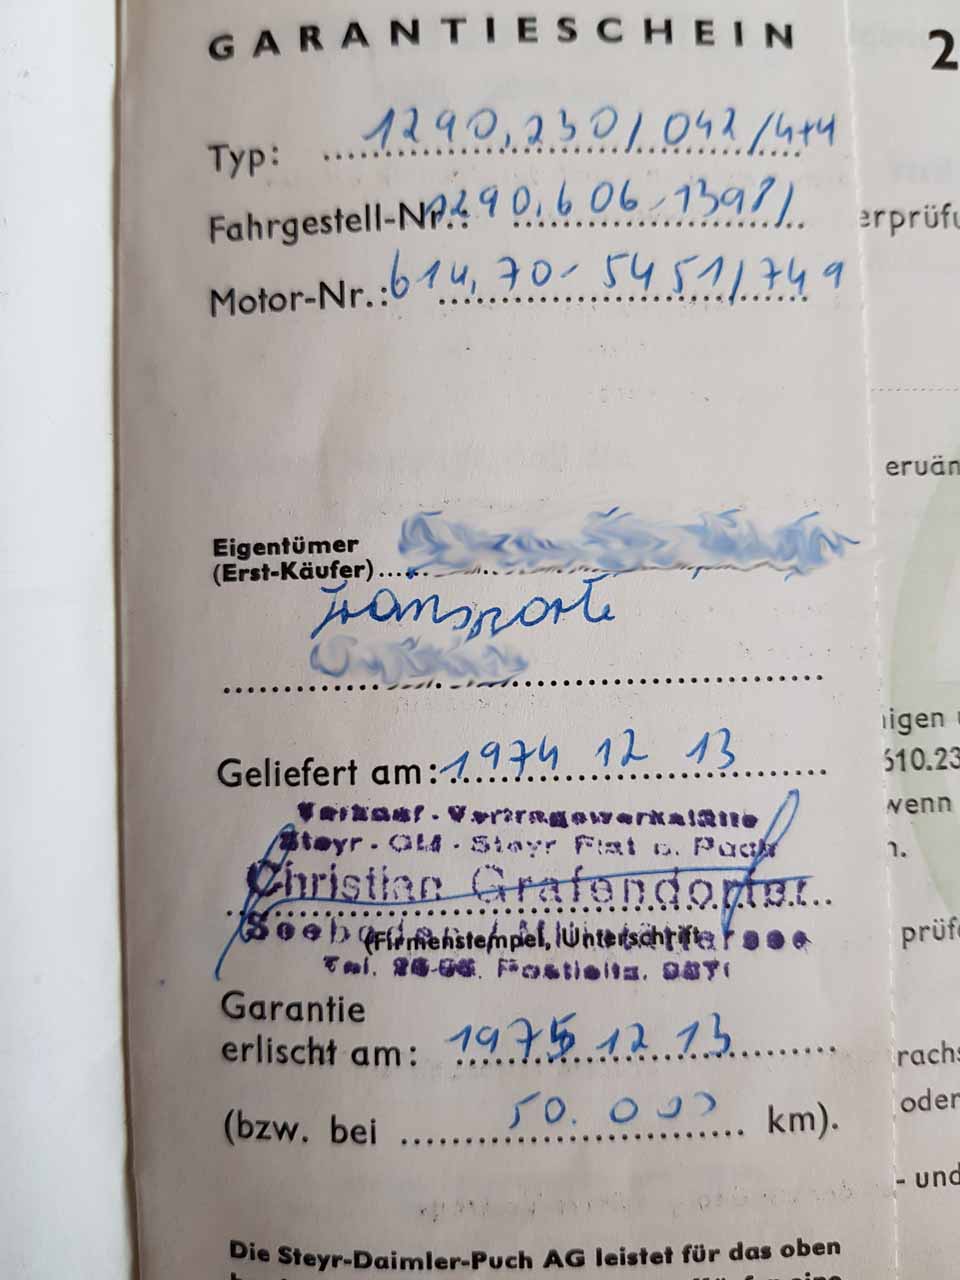 GARANTIESCHEIN
2
Typ: 1290.230/042/4x4
Fahrgestell-Nr.: 1290.606-1398/
erprüfu
Motor-Nr.: 614.70-5451/749
eruän
Eigentümer
(Erst-Käufer)
Transporte
nigen
Geliefert am: 1974 12 13
610.23
wenn
Verkauf - Vertragswerkstätte
n.
Steyr - GM - Steyr Fiat u. Puch
Christian Grafendorfer
prüf
(Firmenstempel, Unterschrift)
Tel. Postleitz. 9871
Garantie
erlischt am: 1975 12 13
rachs
oder
(bzw. bei 50.000 km).
- und
Die Steyr-Daimler-Puch AG leistet für das oben